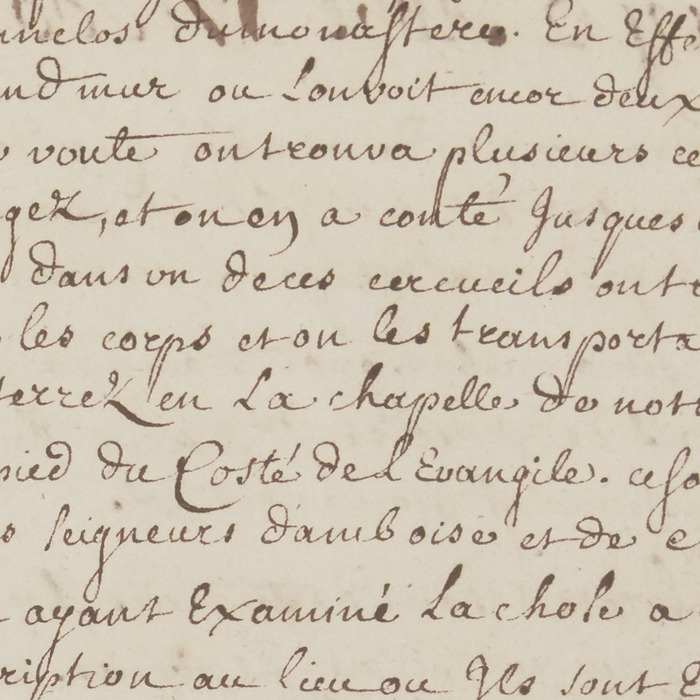 du monastere. En Effe
nd mur ou Lon voit encor deux
voute on trouva plusieurs ce
gez, et on en a conté Jusques
dans vn de ces cercueils on tr
les corps et on les transporta
terrez en La chapelle de nott
pied du Costé de L Evangile. ce so
s seigneurs d'amboise et de c
ayant Examiné La chose a
ription au lieu ou Ils sont E